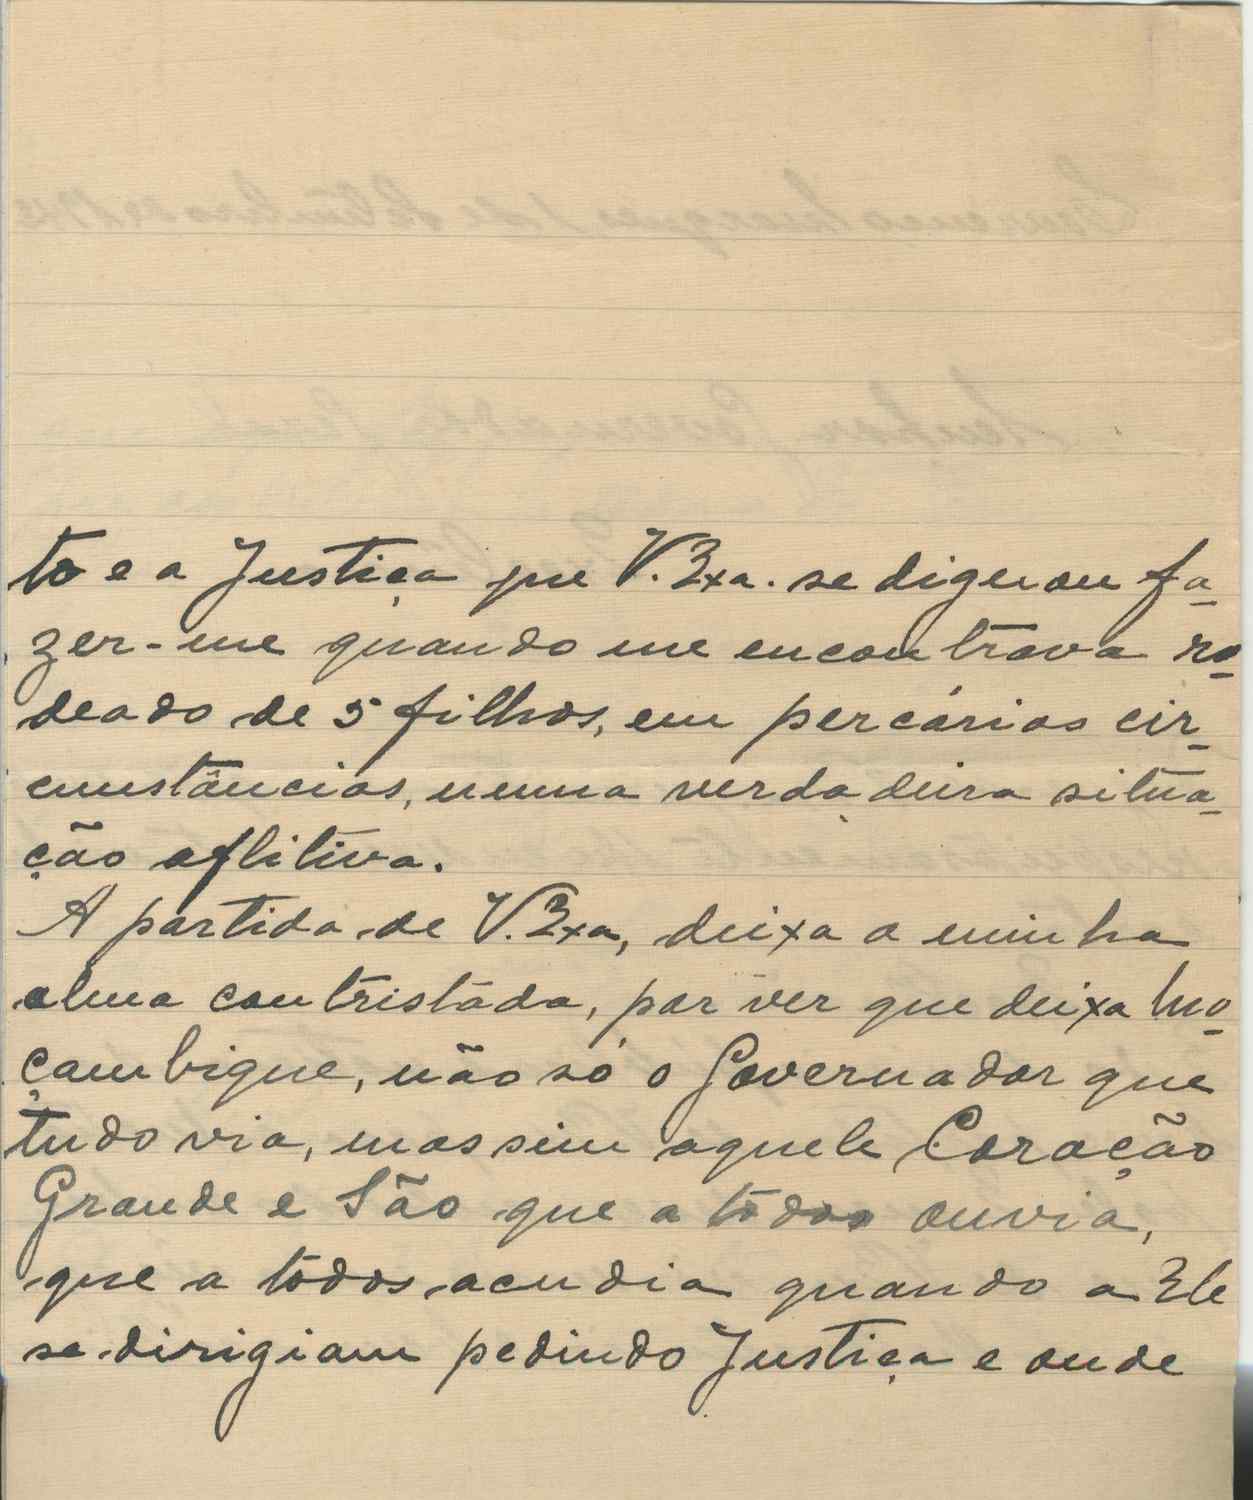 to e a Justiça que V. Exa. se dignou fa-
zer-me quando me encontrava ro-
deado de 5 filhos, em percárias cir-
cunstâncias, numa verdadeira situa-
ção aflitiva.
A partida de V. Exa, deixa a minha
alma contristada, por ver que deixa Mo-
çambique, não só o Governador que
tudo via, mas sim aquele Coração
Grande e São que a todos ouvia,
que a todos acudia quando a Ele
se dirigiam pedindo Justiça e onde